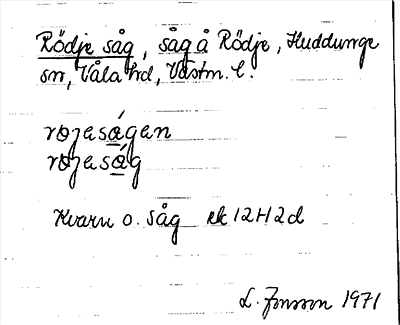 Rödje såg, såg å Rödje, Huddunge
sn, Våla hd, Västm. l.
røjesågen
røjesåg
Kvarn o. såg ek 12H2d
L. Jonsson 1971